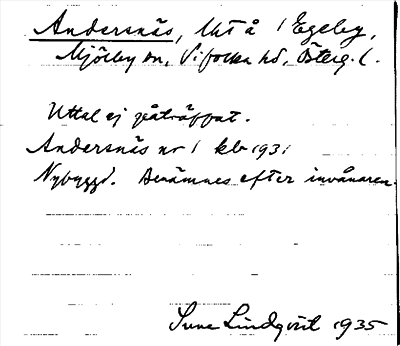 Andersnäs, Uht å 1 Egeby,
Mjölby sn, Vifolka hd, Österg. l.
Uttal ej påträffat.
Andersnäs nr 1 kb 1931
Nybyggd. Benämnes efter invånaren.
Sune Lindqvist 1935